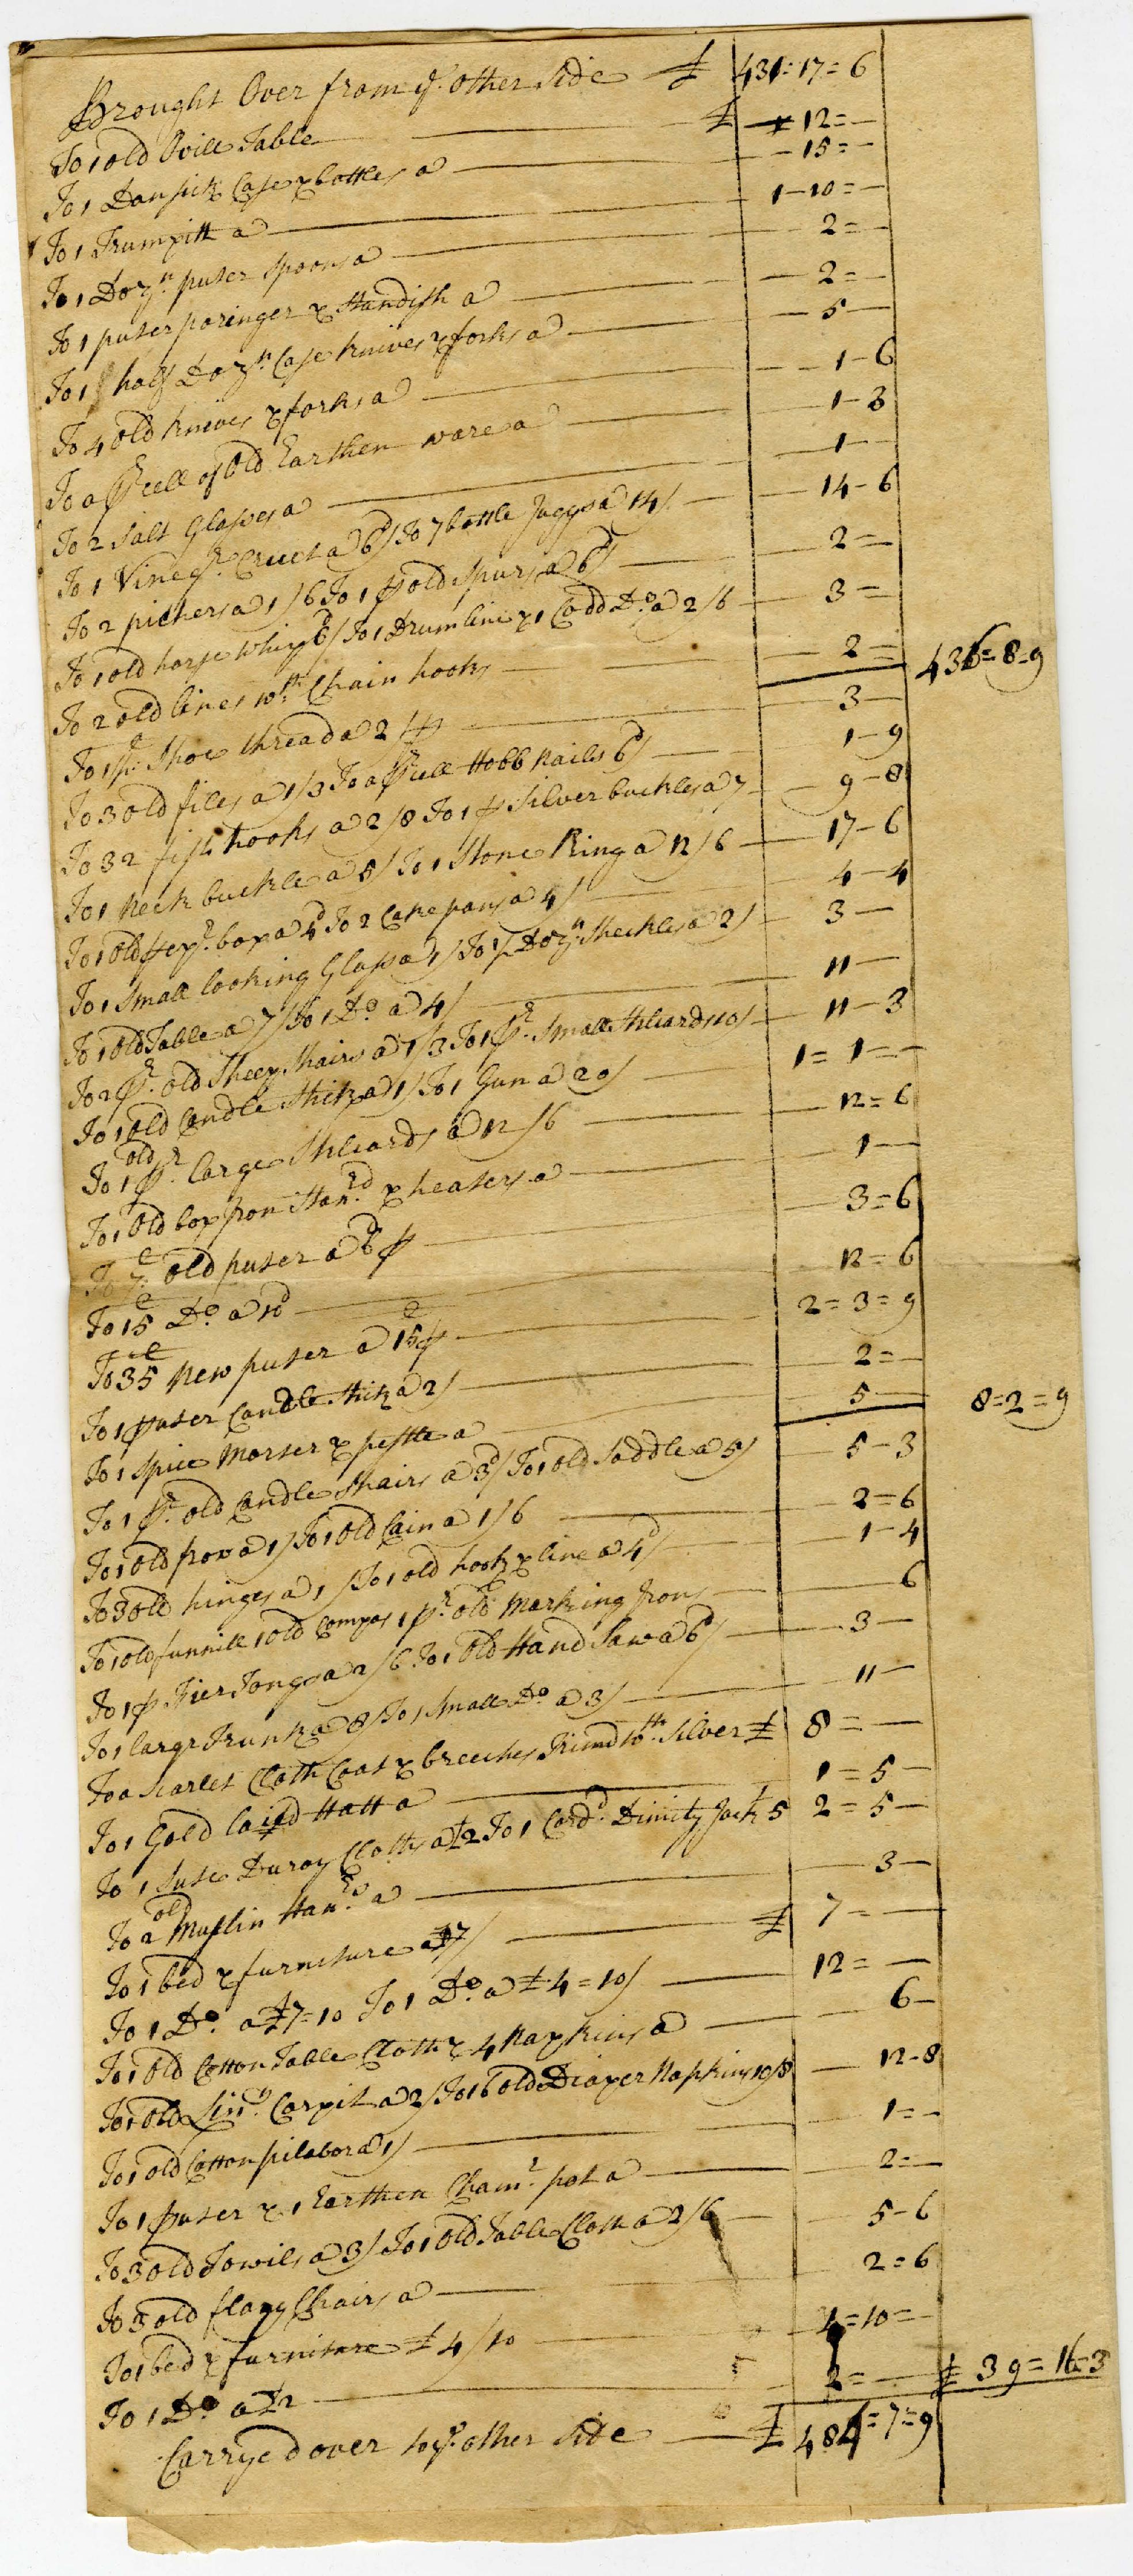 Brought Over from yᵉ other side £ 431=17=6
To 1 old Ovill Table £ 12=—
To 1 Dansick Case & bottles a — 15=—
To 1 Trumpitt a 1—10=—
To 1 Dozⁿ puter spoons a 2=—
To 1 puter poringer & Standish a 2=—
To 1 half Dozⁿ Case knives & forks a 5—
To 4 old knives & forks a 1—6
To a ꝑcell of Old Earthen ware a 1—3
To 2 Salt Glasses a 1—
To 1 Vinegʳ Cruet a 6ᵈ/ To 7 bottle Juggs a 14/ 14—6
To 2 pichers a 1/6 To 1 pʳ old Spurs a 6ᵈ/ 2=—
To 1 old horse whip 6ᵈ/ To 1 Drum line & 1 Codd Dᵒ a 2/6 3=
To 2 old lines wᵗʰ Chain hooks 2= 436=8=9
To 1 ½ Shoe thread a 2/ ꝑ 3—
To 3 old files a 1/3 To a ꝑcell Hobb Nails 6ᵈ/ 1—9
To 32 fish hooks a 2/8 To 1 pʳ Silver buckles a 7 9—8
To 1 Neck buckle a 5/ To 1 Stone Ring a 12/6 17—6
To 1 Old pepʳ box a 4ᵈ To 2 Cake pans a 4/ 4—4
To 1 Small looking Glass a 1/ To ½ Dozⁿ Sheckles a 2/ 3—
To 1 Old Table a 7/ To 1 Dᵒ a 4/ 11—
To 2 pʳ old Sheep Shairs a 1/3 To 1 pʳ Small Stiliards 10/ 11—3
To 1 old Candle Stick a 1/ To 1 Gun a 20/ 1=1=—
To 1 old pʳ large Stiliards a 12/6 12=6
To 1 Old box Iron Stanᵈ & heaters a 1—
To 7 old puter a 6ᵈ ꝑ 3=6
To 15 Dᵒ a 10ᵈ 12=6
To 35 New puter a 15 ꝑ 2=3=9
To 1 puter Candle Stick a 2/ 2=—
To 1 Spice Morter & pestle a 5— 8=2=9
To 1 pʳ old Candle Shairs a 3ᵈ/ To 1 old Saddle a 5/ 5—3
To 1 Old frow a 1/ To 1 Old Cain a 1/6 2=6
To 3 old hinges a 1/ To 1 old hook & line a 4ᵈ/ 1—4
To 1 old funnill 1 old Compas 1 pʳ old Marking Irons 6
To 1 pʳ Fier Tongs a 2/6 To 1 Old Hand Saw a 6ᵈ/ 3—
To 1 large Trunk a 8/ To 1 Small Dᵒ a 3/ 11—
To a Scarlet Cloth Coat & breeches Trimd wᵗʰ Silver £ 8=—
To 1 Gold laied Hatt a 1=5—
To 1 Sute Duroy Cloths a £2 To 1 Cordᵈ Dimity Jackᵗ 5 2=5—
To 2 old Muslin Hanᵈ a 3—
To 1 bed & furniture a £7/ £ 7=—
To 1 Dᵒ a £7=10 To 1 Dᵒ a £4=10/ 12=—
To 1 Old Cotton Table Cloth & 4 Napkins a 6—
To 1 Old Linⁿ Carpit a 2/ To 16 old Diaper Napkins 10/8 12-8
To 1 old Cotton pilabor a 1/ 1=-
To 1 puter & 1 Earthen Chamʳ pot a 2=—
To 3 Old Towils a 3/ To 1 Old Table Cloth a 2/6 5-6
To 5 old flagg Chairs a 2=6
To 1 bed & furniture £4/10 4=10=—
To 1 Dᵒ a £2 2=— £ 39=16=3
Carryed over to yᵉ other side £ 484=7=9